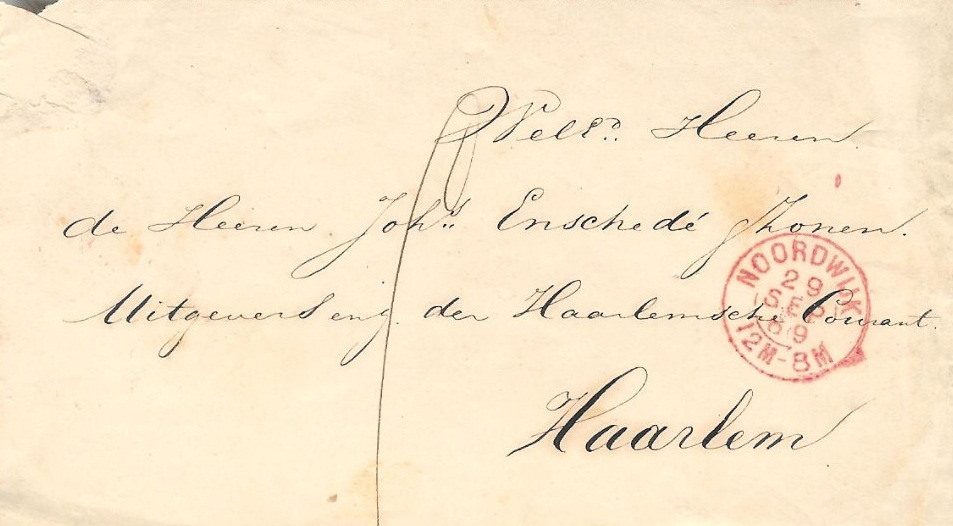 WelEd. Heeren
de Heeren Johs. Enschedé Zonen.
Uitgevers eng. der Haarlemsche Courant.
Haarlem
NOORDWIJK
29
SEP
69
12M-8M